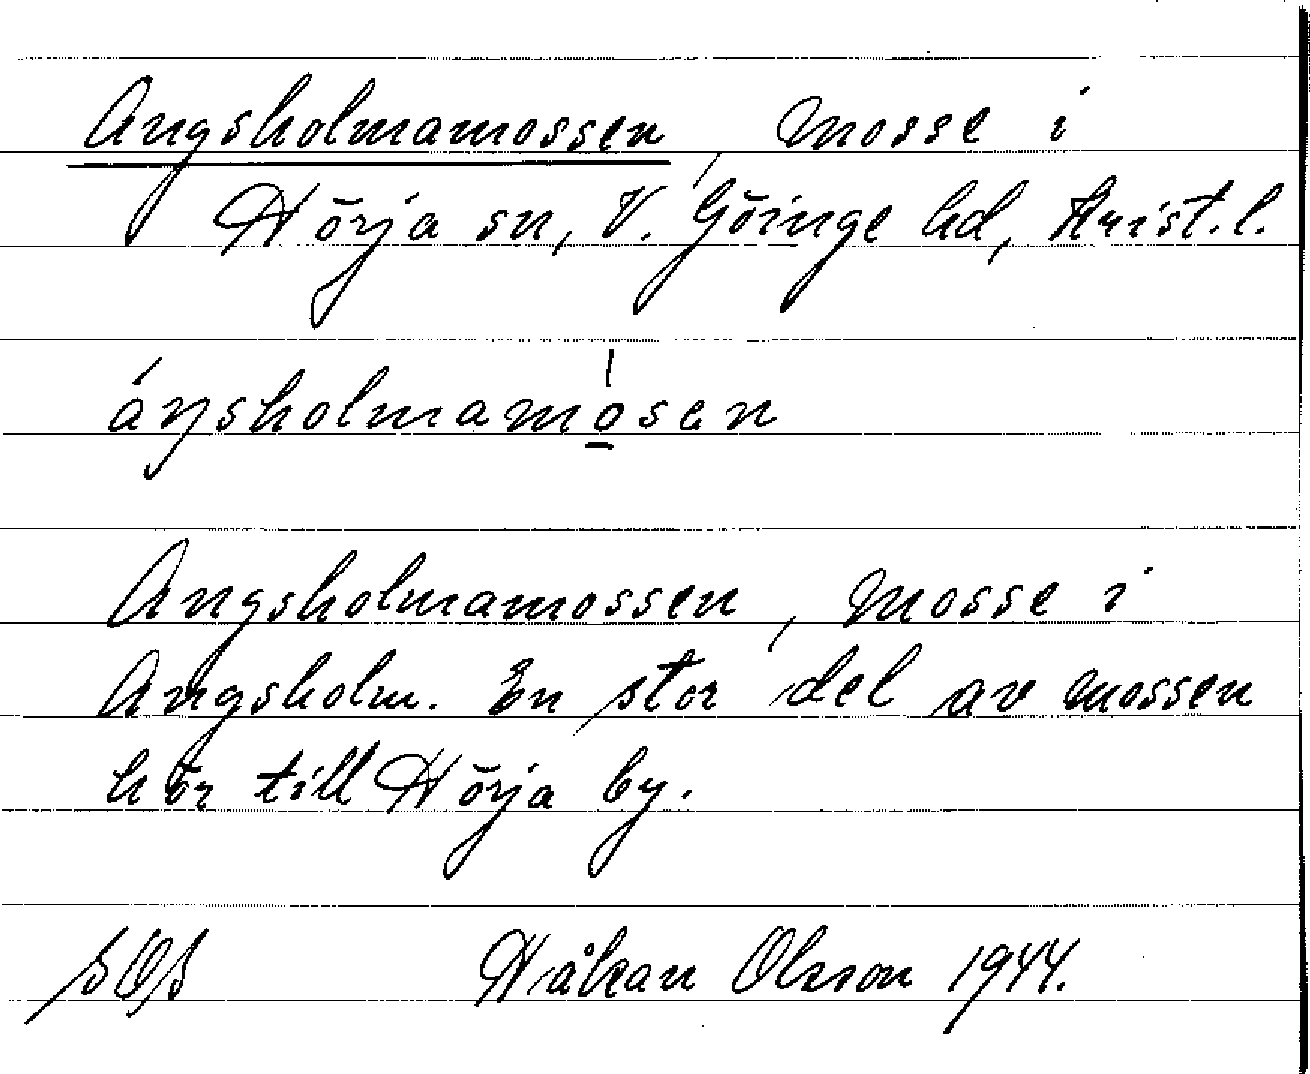 Angsholmamossen, mosse i
Hörja sn, V. Göinge hd, Krist. l.
áŋsholmamo̱sen
Angsholmamossen, mosse i
Angsholm. En stor del av mossen
hör till Hörja by.
Håkan Olsson 1944.